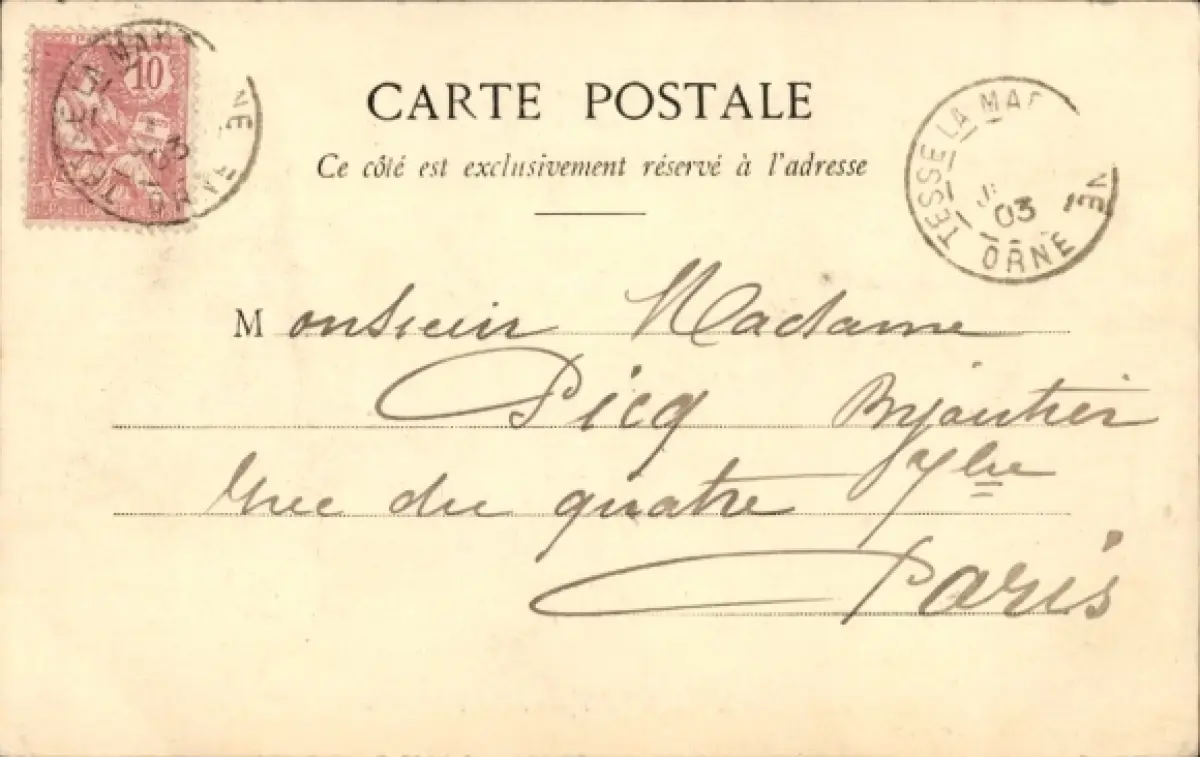 10
CARTE POSTALE
Ce côté est exclusivement réservé à l'adresse
TESSE LA MA NE
03
ORNE
Monsieur Madame
Picq Bijoutier
Rue du quatre 7bre
Paris